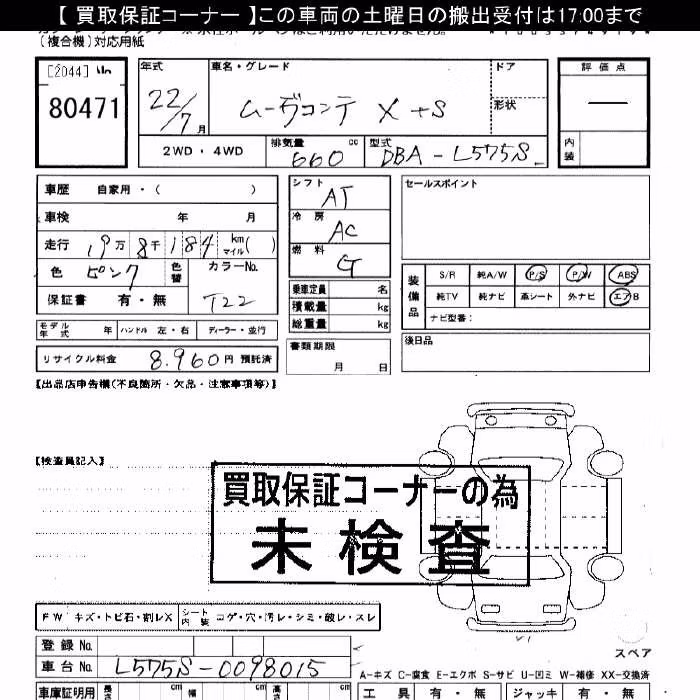 【 買取保証コーナー 】この車両の土曜日の搬出受付は17:00まで
(複合機)対応用紙
[2044]
80471
年式 22/7月
車名・グレード ムーヴコンテ X+S
ドア
形状
評価点 —
内装
2WD・4WD
排気量 660 cc
型式 DBA-L575S
車歴 自家用・( )
車検 年 月
走行 19万8千184 km マイル( )
色 ピンク 色替
カラーNo. T22
保証書 有・無
モデル年式 年 ハンドル 左・右 ディーラー・並行
リサイクル料金 8.960円 預託済
シフト AT
冷房 AC
燃料 G
乗車定員 名
積載量 kg
総重量 kg
書類期限 月 日
セールスポイント
装備品
S/R 純A/W P/S P/W ABS
純TV 純ナビ 革シート 外ナビ エアB
ナビ型番:
後日品
【出品店申告欄(不良箇所・欠品・注意事項等)】
【検査員記入】
買取保証コーナーの為
未検査
FW キズ・トビ石・割レX
シート内装 コゲ・穴・汚レ・シミ・破レ・スレ
登録No.
車台No. L575S-0098015
スペア
A-キズ C-腐食 E-エクボ S-サビ U-凹ミ W-補修 XX-交換済
車庫証明用 長さ cm 幅 cm 高さ cm
工具 有・無 ジャッキ 有・無